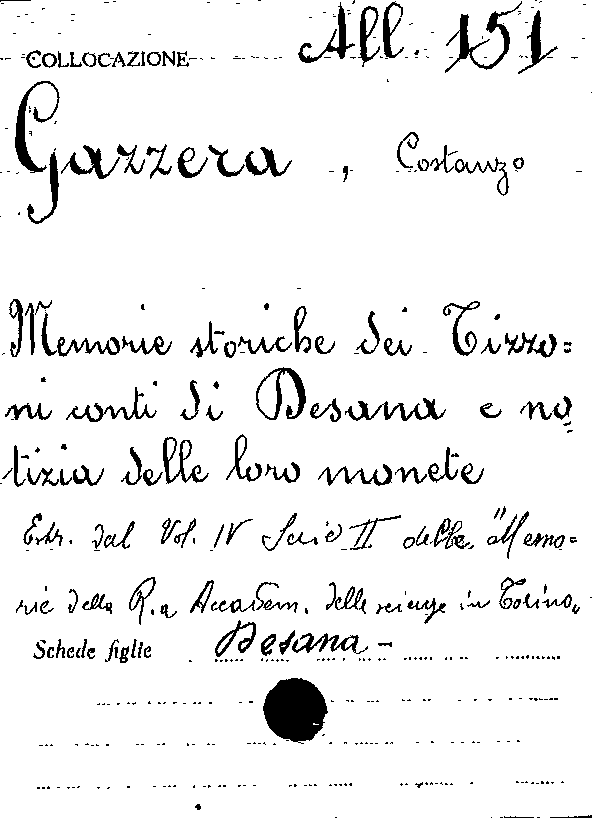 COLLOCAZIONE All. 151
Gazzera, Costanzo
Memorie storiche dei Tizzo=
ni conti di Desana e no=
tizia delle loro monete
Estr. dal Vol. IV Serie II delle "Memo=
rie della R.a Accadem. delle scienze in Torino"
Schede figlie Desana -